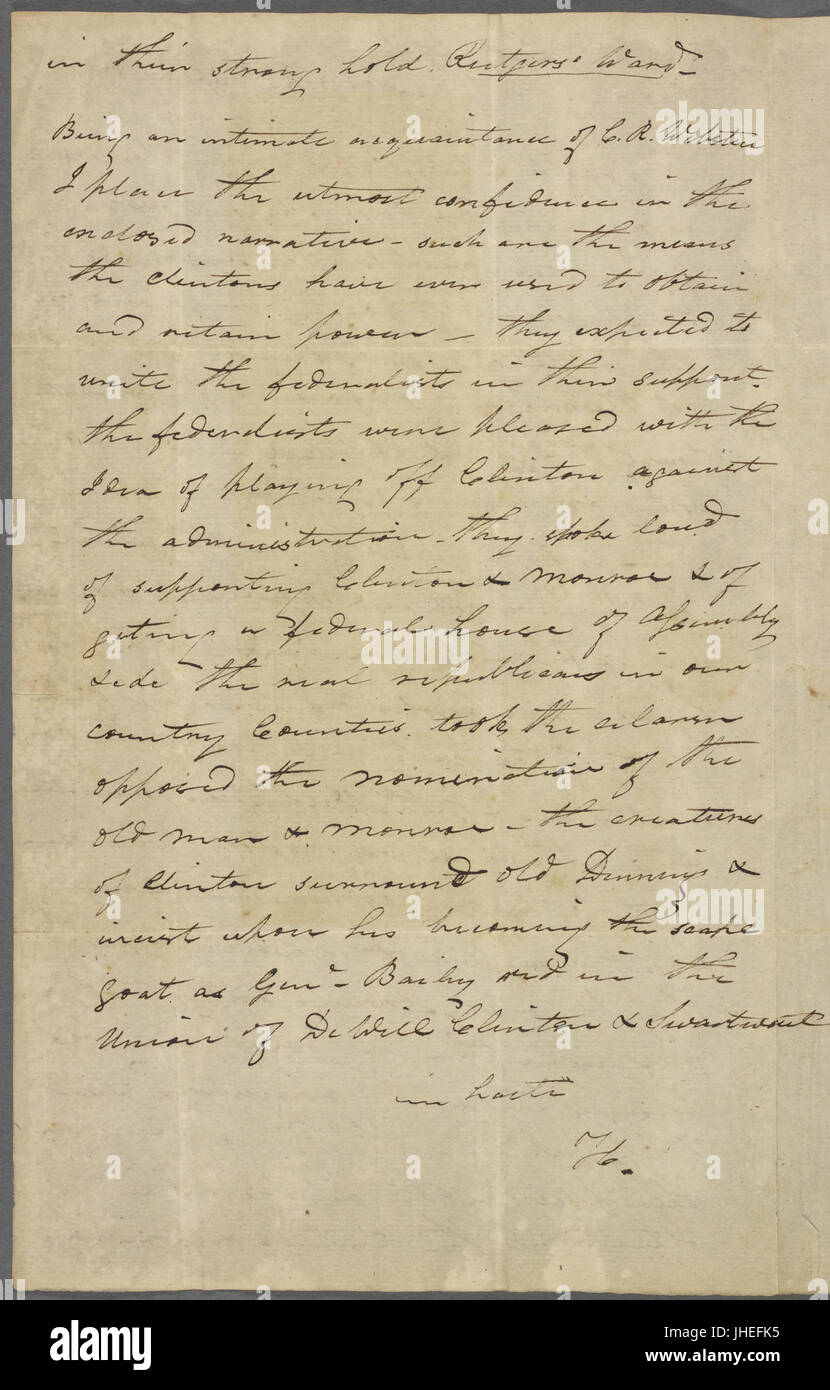 in their strong hold. Rutgers' Ward—
Being an intimate acquaintance of C. R. Webster
I place the utmost confidence in the
enclosed narrative – such are the means
the clintons have ever used to obtain
and retain power – they expected to
unite the federalists in their support.
the federalists were pleased with the
Idea of playing off Clinton against
the administration – they spoke loud
of supporting Clinton & Monroe & of
geting a federal house of Assembly
the real republicans in our
country Counties. took the alarm
opposed the nomination of the
old man & monroe – the creatures
of Clinton surround old Denning &
insist upon his becoming the scape
goat as Genl – Bailey did in the
Union of DeWitt Clinton & Swartwout
in haste
H.
alamy stock photo
a
a
a
a
a
a
a
a
alamy
Image ID: JHEFK5
www.alamy.com